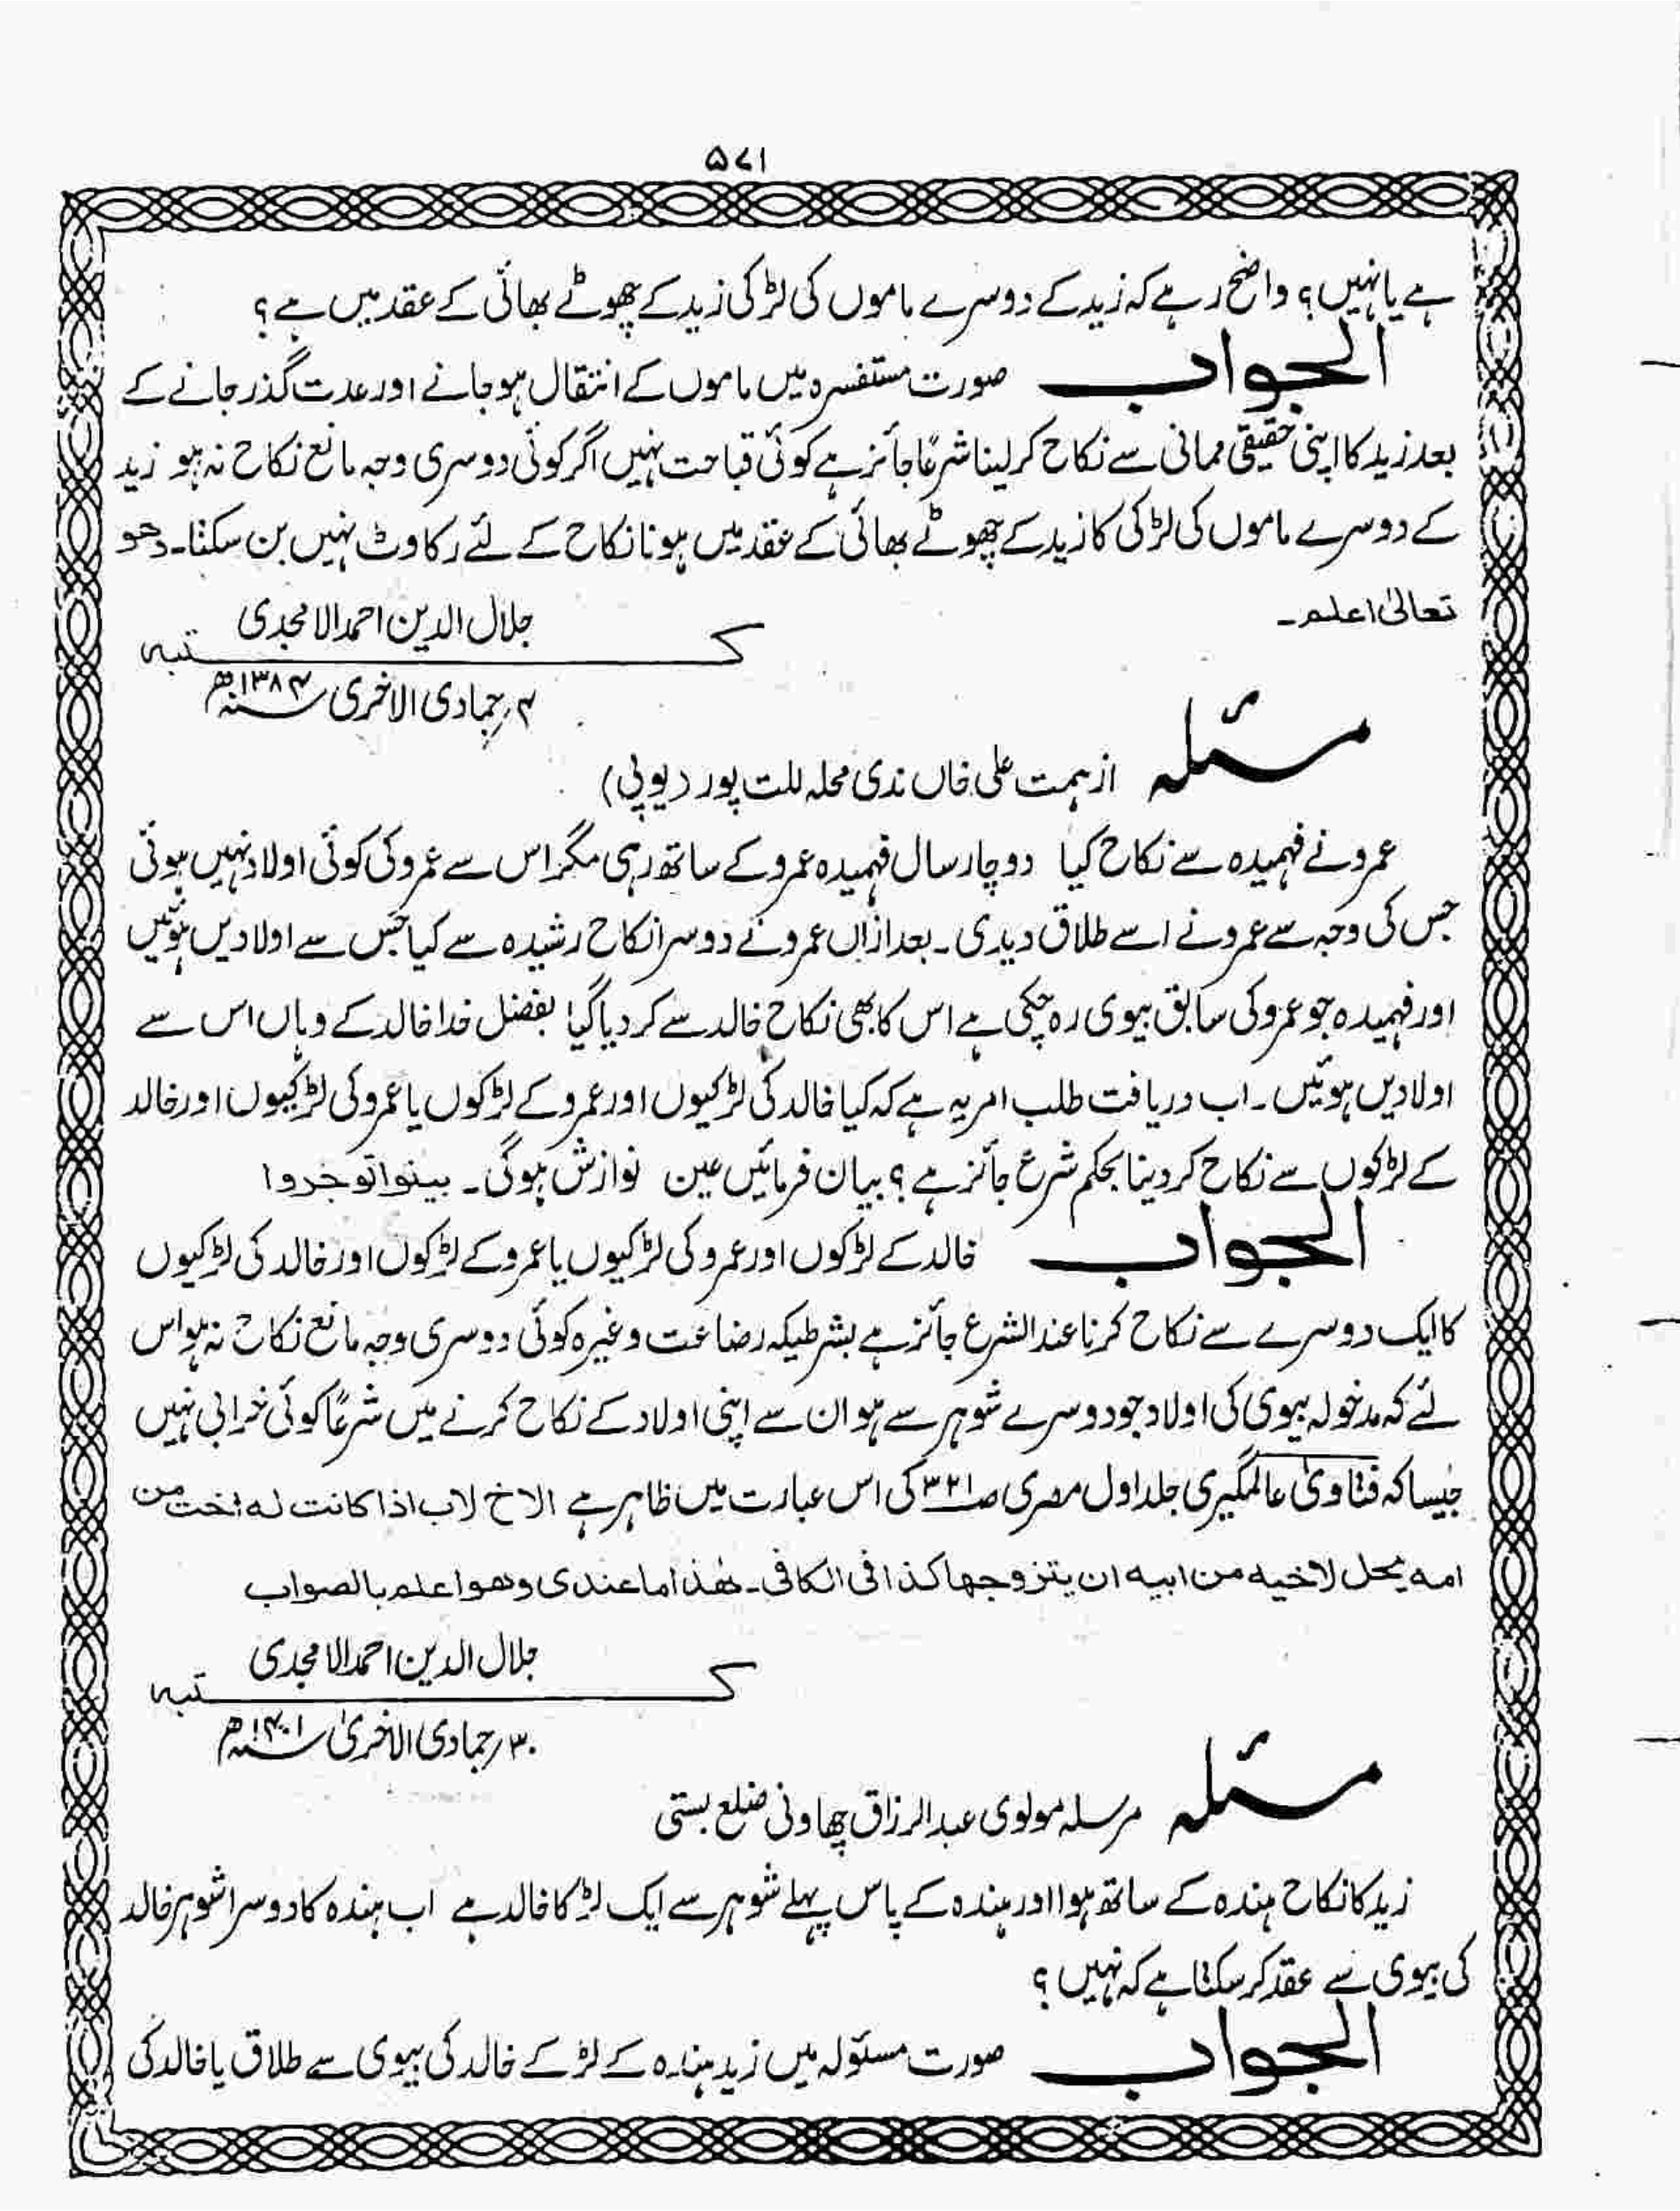 ۵۷۱
ہے یا نہیں؟ واضح رہے کہ زید کے دوسرے ماموں کی لڑکی زید کے چھوٹے بھائی کے عقد میں ہے؟
الجواب صورت مستفسرہ میں ماموں کے انتقال ہوجانے اور عدت گذر جانے کے
بعد زید کا اپنی حقیقی ممانی سے نکاح کرلینا شرعًا جائز ہے کوئی قباحت نہیں اگر کوئی دوسری وجہ مانع نکاح نہ ہو زید
کے دوسرے ماموں کی لڑکی کا زید کے چھوٹے بھائی کے عقد میں ہونا نکاح کے لئے رکاوٹ نہیں بن سکتا۔ وھو
تعالیٰ اعلم۔
جلال الدین احمد الامجدی
کتبہ
۴؍ جمادی الاخری سنہ ۱۳۸۴ھ
مسئلہ از ہمت علی خاں ندی محلہ للت پور (یوپی)
عمرو نے فہمیدہ سے نکاح کیا دو چار سال فہمیدہ عمرو کے ساتھ رہی مگر اس سے عمرو کی کوئی اولاد نہیں ہوئی
جس کی وجہ سے عمرو نے اسے طلاق دیدی۔ بعد ازاں عمرو نے دوسرا نکاح رشیدہ سے کیا جس سے اولادیں ہوئیں
اور فہمیدہ جو عمرو کی سابق بیوی رہ چکی ہے اس کا بھی نکاح خالد سے کردیا گیا بفضل خدا خالد کے وہاں اس سے
اولادیں ہوئیں۔ اب دریافت طلب امر یہ ہے کہ کیا خالد کی لڑکیوں اور عمرو کے لڑکوں یا عمرو کی لڑکیوں اور خالد
کے لڑکوں سے نکاح کردینا بحکم شرع جائز ہے؟ بیان فرمائیں عین نوازش ہوگی۔ بینوا توجروا
الجواب خالد کے لڑکوں اور عمرو کی لڑکیوں یا عمرو کے لڑکوں اور خالد کی لڑکیوں
کا ایک دوسرے سے نکاح کرنا عند الشرع جائز ہے بشرطیکہ رضاعت وغیرہ کوئی دوسری وجہ مانع نکاح نہ ہو اس
لئے کہ مدخولہ بیوی کی اولاد جو دوسرے شوہر سے ہو ان سے اپنی اولاد کے نکاح کرنے میں شرعًا کوئی خرابی نہیں
جیسا کہ فتاویٰ عالمگیری جلد اول مصری صـ۳۲۱ کی اس عبارت میں ظاہر ہے الاخ لاب اذا کانت لہ اخت من
امہ یحل لاخیہ من ابیہ ان یتزوجھا کذا فی الکافی۔ ھٰذا ما عندی وھو اعلم بالصواب
جلال الدین احمد الامجدی
کتبہ
۳۰؍ جمادی الاخریٰ سنہ ۱۴۰۱ھ
مسئلہ مرسلہ مولوی عبد الرزاق چھاونی ضلع بستی
زید کا نکاح ہندہ کے ساتھ ہوا اور ہندہ کے پاس پہلے شوہر سے ایک لڑکا خالد ہے اب ہندہ کا دوسرا شوہر خالد
کی بیوی سے عقد کرسکتا ہے کہ نہیں؟
الجواب صورت مسئولہ میں زید ہندہ کے لڑکے خالد کی بیوی سے طلاق یا خالد کی